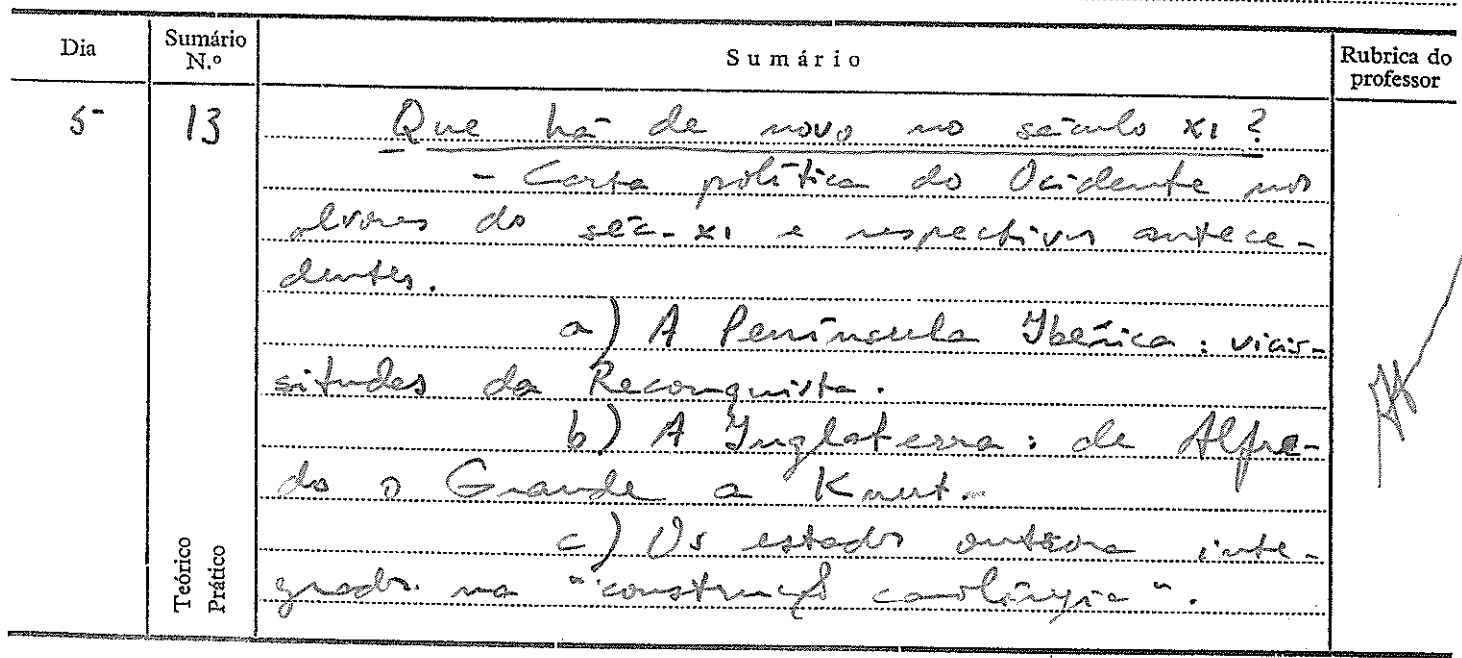 Dia Sumário N.º Sumário Rubrica do professor
5 13 Que há de novo no século XI?
- Carta política do Ocidente nos
alvores do séc. XI e respectivos antece-
dentes.
a) A Península Ibérica: vicis-
situdes da Reconquista.
b) A Inglaterra: de Alfre-
do o Grande a Knut.
c) Os estados outrora inte-
grados na "construção carolíngia".
Teórico
Prático